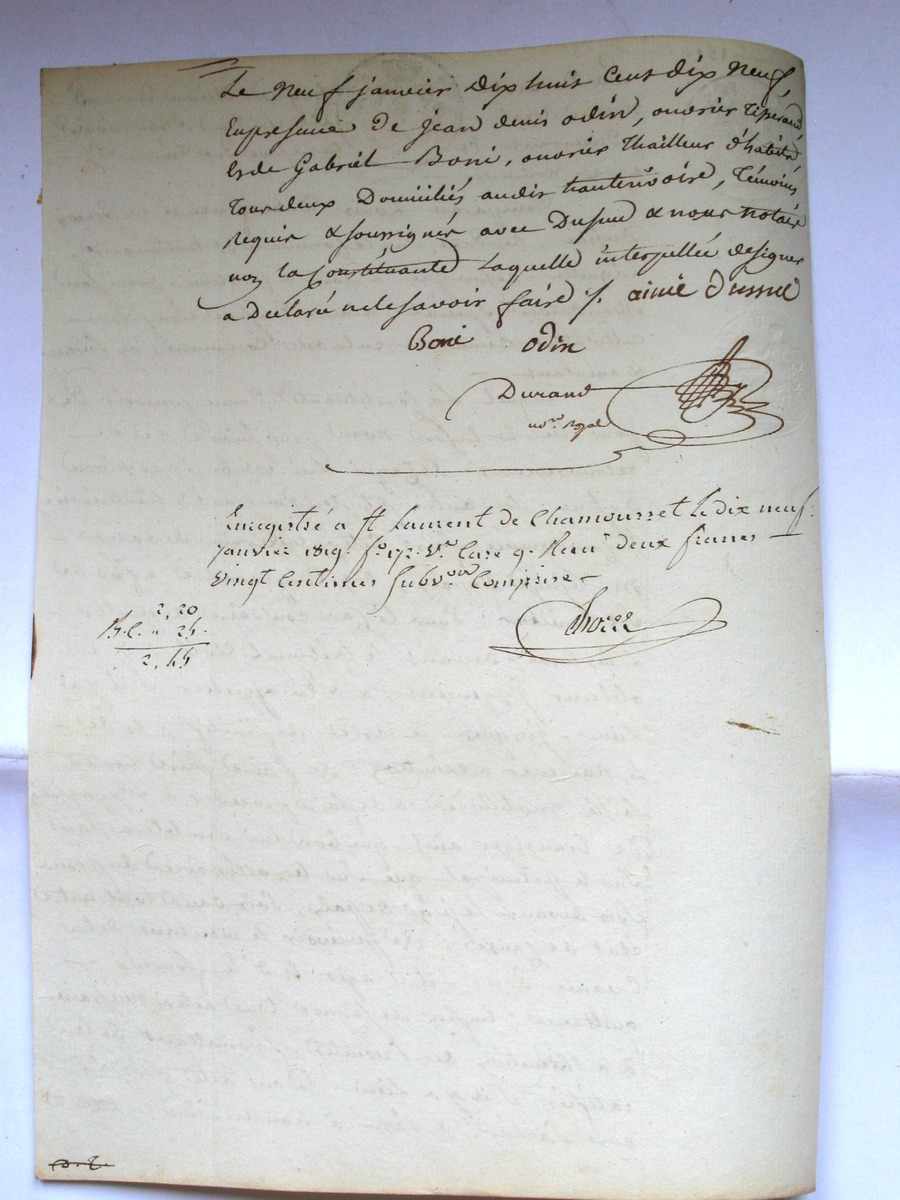 Le neuf janvier dix huit cent dix neuf,
En presence de jean denis odin, ouvrier Tisserand
Et de Gabriél Boni, ouvrier Thailleur d'habits
Tous deux Domiciliés audit hauterivoire, Témoins
requis & soussignés avec Dusud & nous notaire
non la Constituante Laquelle interpellée designer
a Déclaré nele savoir faire ./. aimé dussud
Boni odin
Durand
no.re Royal
Enregistré a St Laurent de Chamousset Le dix neuf
janvier 1819. fo. 172. Vo. Case 9. Recu deux francs
vingt Centimes Subvon Comprise
2, 20
2, 45